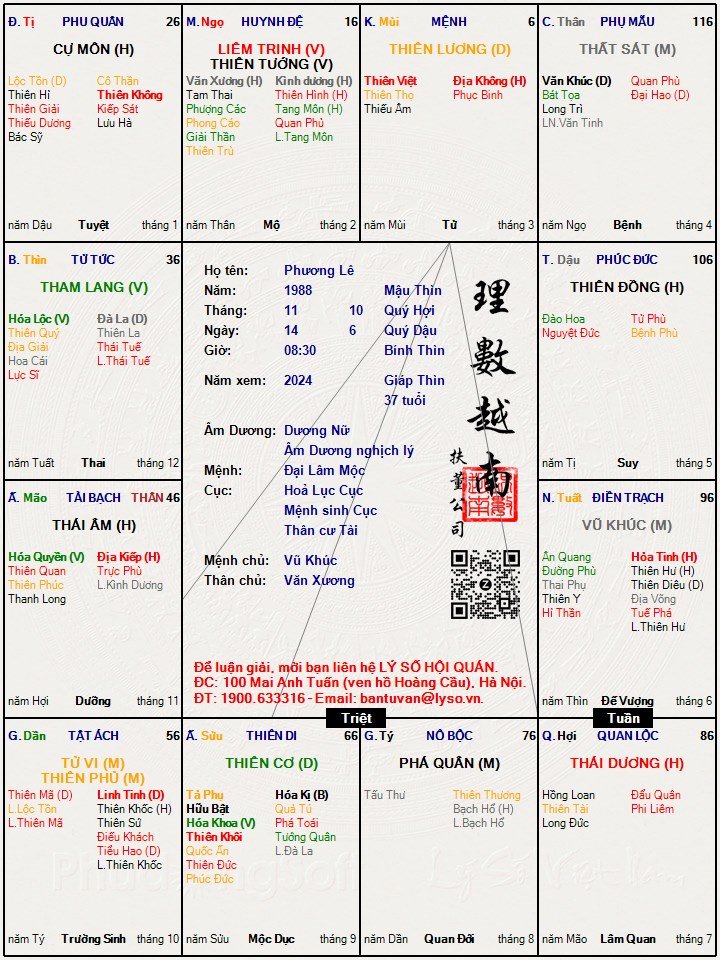 Đ. Tị PHU QUÂN 26
CỰ MÔN (H)
Lộc Tồn (Đ) Cô Thần
Thiên Hỉ Thiên Không
Thiên Giải Kiếp Sát
Thiếu Dương Lưu Hà
Bác Sỹ
năm Dậu Tuyệt tháng 1
M. Ngọ HUYNH ĐỆ 16
LIÊM TRINH (V)
THIÊN TƯỚNG (V)
Văn Xương (H) Kình dương (H)
Tam Thai Thiên Hình (H)
Phượng Các Tang Môn (H)
Phong Cáo Quan Phủ
Giải Thần L.Tang Môn
Thiên Trù
năm Thân Mộ tháng 2
K. Mùi MỆNH 6
THIÊN LƯƠNG (Đ)
Thiên Việt Địa Không (H)
Thiên Thọ Phục Binh
Thiếu Âm
năm Mùi Tử tháng 3
C. Thân PHỤ MẪU 116
THẤT SÁT (M)
Văn Khúc (Đ) Quan Phù
Bát Tọa Đại Hao (Đ)
Long Trì
LN.Văn Tinh
năm Ngọ Bệnh tháng 4
B. Thìn TỬ TỨC 36
THAM LANG (V)
Hóa Lộc (V) Đà La (Đ)
Thiên Quý Thiên La
Địa Giải Thái Tuế
Hoa Cái L.Thái Tuế
Lực Sĩ
năm Tuất Thai tháng 12
Họ tên: Phương Lê
Năm: 1988 Mậu Thìn
Tháng: 11 10 Quý Hợi
Ngày: 14 6 Quý Dậu
Giờ: 08:30 Bính Thìn
Năm xem: 2024 Giáp Thìn
37 tuổi
Âm Dương: Dương Nữ
Âm Dương nghịch lý
Mệnh: Đại Lâm Mộc
Cục: Hoả Lục Cục
Mệnh sinh Cục
Thân cư Tài
Mệnh chủ: Vũ Khúc
Thân chủ: Văn Xương
理數越南
扶董公司
Để luận giải, mời bạn liên hệ LÝ SỐ HỘI QUÁN.
ĐC: 100 Mai Anh Tuấn (ven hồ Hoàng Cầu), Hà Nội.
ĐT: 1900.633316 - Email: bantuvan@lyso.vn.
T. Dậu PHÚC ĐỨC 106
THIÊN ĐỒNG (H)
Đào Hoa Tử Phù
Nguyệt Đức Bệnh Phù
năm Tị Suy tháng 5
Ấ. Mão TÀI BẠCH THÂN 46
THÁI ÂM (H)
Hóa Quyền (V) Địa Kiếp (H)
Thiên Quan Trực Phù
Thiên Phúc L.Kình Dương
Thanh Long
năm Hợi Dưỡng tháng 11
N. Tuất ĐIỀN TRẠCH 96
VŨ KHÚC (M)
Ân Quang Hỏa Tinh (H)
Đường Phù Thiên Hư (H)
Thai Phụ Thiên Diêu (Đ)
Thiên Y Địa Võng
Hỉ Thần Tuế Phá
L.Thiên Hư
năm Thìn Đế Vượng tháng 6
Triệt
Tuần
G. Dần TẬT ÁCH 56
TỬ VI (M)
THIÊN PHỦ (M)
Thiên Mã (Đ) Linh Tinh (Đ)
L.Lộc Tồn Thiên Khốc (H)
L.Thiên Mã Thiên Sứ
Điếu Khách
Tiểu Hao (Đ)
L.Thiên Khốc
năm Tý Trường Sinh tháng 10
Ấ. Sửu THIÊN DI 66
THIÊN CƠ (Đ)
Tả Phụ Hóa Kị (B)
Hữu Bật Quả Tú
Hóa Khoa (V) Phá Toái
Thiên Khôi Tướng Quân
Quốc Ấn L.Đà La
Thiên Đức
Phúc Đức
năm Sửu Mộc Dục tháng 9
G. Tý NÔ BỘC 76
PHÁ QUÂN (M)
Tấu Thư Thiên Thương
Bạch Hổ (H)
L.Bạch Hổ
năm Dần Quan Đới tháng 8
Q. Hợi QUAN LỘC 86
THÁI DƯƠNG (H)
Hồng Loan Đẩu Quân
Thiên Tài Phi Liêm
Long Đức
năm Mão Lâm Quan tháng 7